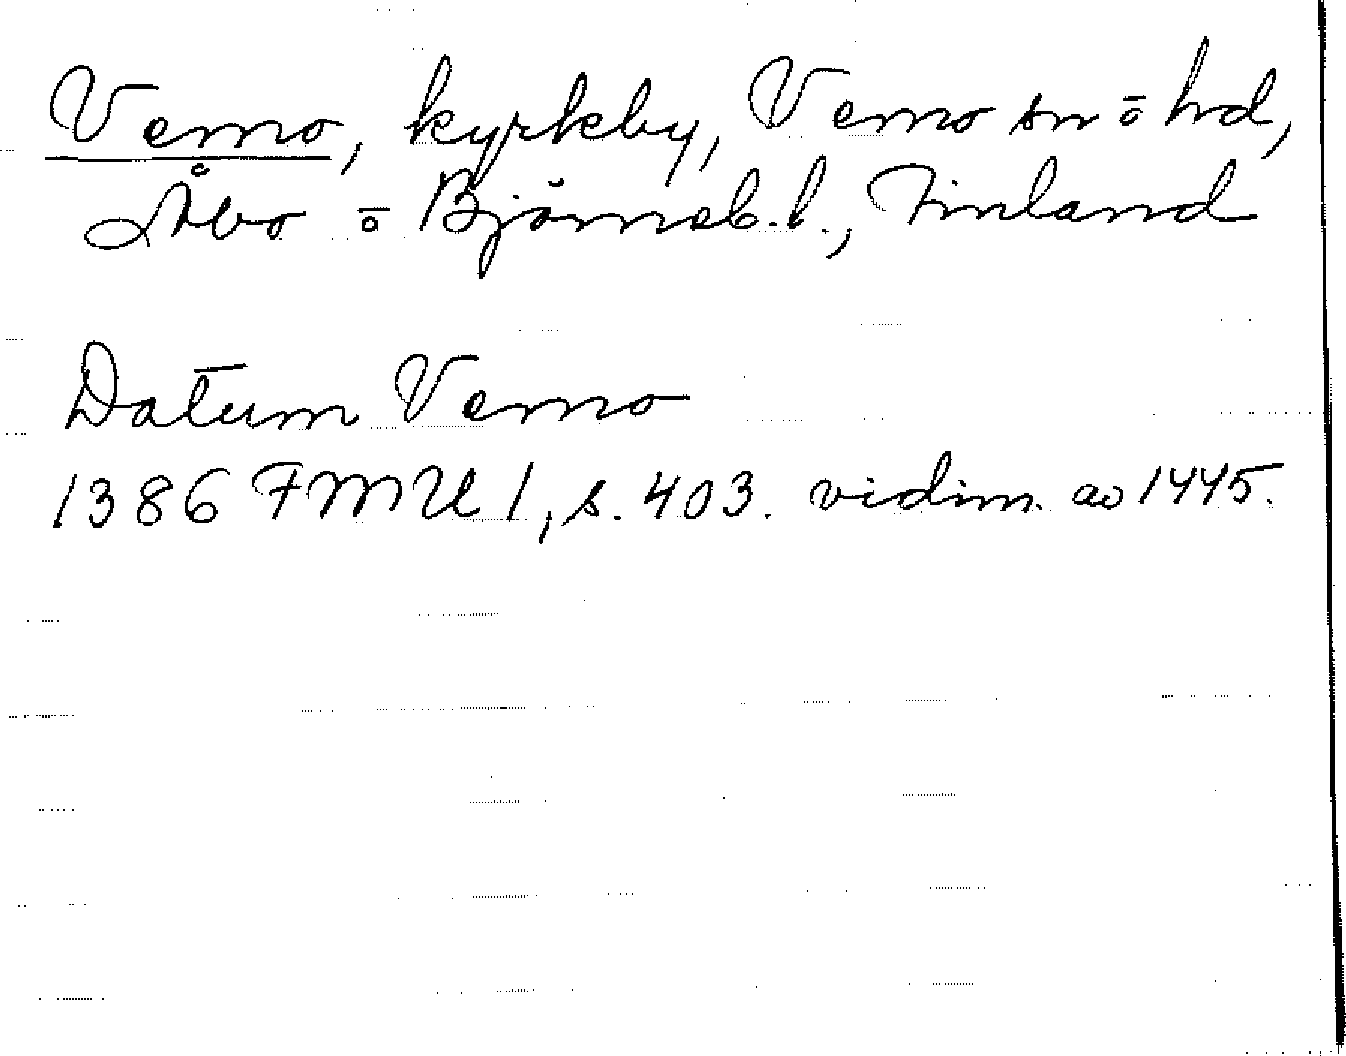 Vemo, kyrkby, Vemo sn ō hd,
Åbo ō Björneb. l., Finland
Datum Vemo
1386 FMU 1, s. 403. vidim. ao 1445.